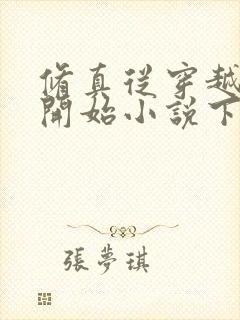 脩真從穿越
開始小說下
張夢琪